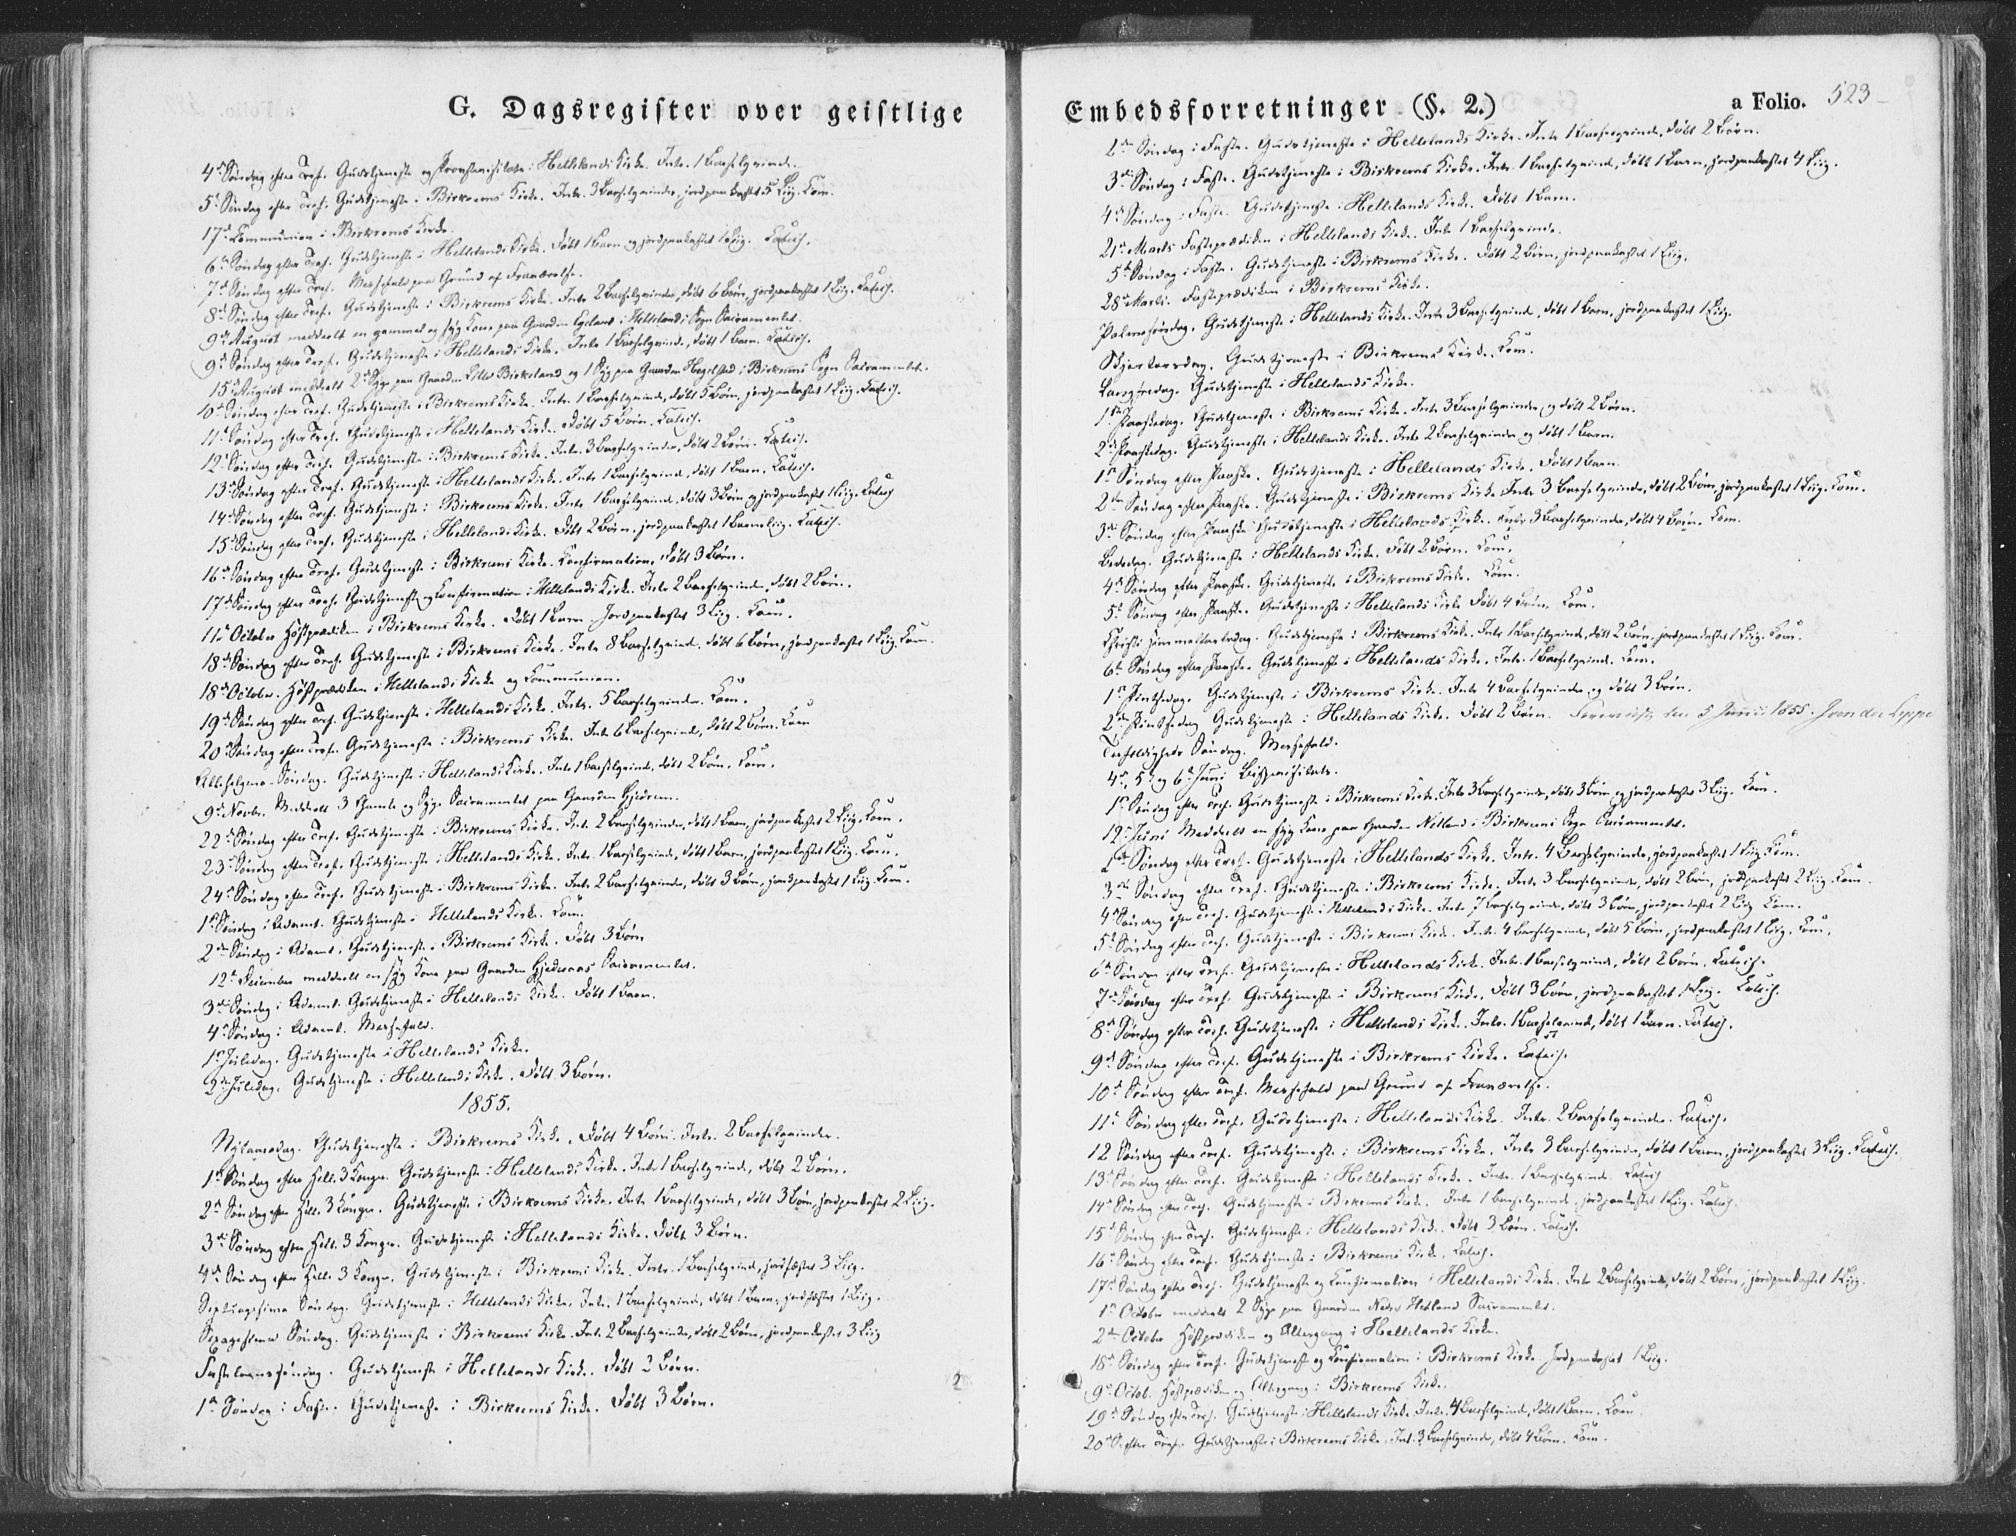 G. Dagsregister over geistlige
4de Søndag efter Tref. Gudstjeneste og Provstevisitats i Hellelands Kirke. Intr. 1 Barselqvinde.
5te Søndag efter Tref. Gudstjeneste i Birkrems Kirke. Intr. 3 Barselqvinder, jordpaakastet 5 Liig. Kom.
17de Kommunion i Birkrems Kirke.
6te Søndag efter Tref. Gudstjeneste i Hellelands Kirke. Døbt 1 Barn og jordpaakastet 1 Liig. Catech.
7de Søndag efter Tref. Messefald paa Grund af Fraværelse.
8de Søndag efter Tref. Gudstjeneste i Birkrems Kirke. Intr. 2 Barselqvinder, døbt 6 Børn, jordpaakastet 1 Liig. Catech.
9de August meddeelt en gammel og syg Kone paa Gaarden Egeland i Hellelands Sogn Sacramentet.
9de Søndag efter Tref. Gudstjeneste i Hellelands Kirke. Intr. 1 Barselqvinde, døbt 1 Barn. Catech.
15de August meddeelt 2 Syge paa Gaarden Lille Birkeland og 1 Syg paa Gaarden Hegelstad i Birkrems Sogn Sacramentet.
10de Søndag efter Tref. Gudstjeneste i Birkrems Kirke. Intr. 1 Barselqvinde, døbt 5 Børn, jordpaakastet 1 Liig. Catech.
11te Søndag efter Tref. Gudstjeneste i Hellelands Kirke. Døbt 5 Børn. Catech.
12te Søndag efter Tref. Gudstjeneste i Birkrems Kirke. Intr. 3 Barselqvinder, døbt 2 Børn. Catech.
13de Søndag efter Tref. Gudstjeneste i Hellelands Kirke. Intr. 1 Barselqvinde, døbt 1 Barn. Catech.
14de Søndag efter Tref. Gudstjeneste i Birkrems Kirke. Intr. 1 Barselqvinde, døbt 3 Børn og jordpaakastet 1 Liig. Catech.
15de Søndag efter Tref. Gudstjeneste i Hellelands Kirke. Døbt 2 Børn, jordpaakastet 1 Barnelig. Catech.
16de Søndag efter Tref. Gudstjeneste i Birkrems Kirke. Confirmation, døbt 3 Børn.
17de Søndag efter Tref. Gudstjeneste og Confirmation i Hellelands Kirke. Intr. 2 Barselqvinder, døbt 2 Børn.
11te October Høstprædiken i Birkrems Kirke. Døbt 1 Barn. Jordpaakastet 3 Liig. Kom.
18de Søndag efter Tref. Gudstjeneste i Birkrems Kirke. Intr. 8 Barselqvind. døbt 6 Børn, jordpaakastet 1 Liig. Kom.
18de October. Høstprædiken i Hellelands Kirke og Kommunion.
19de Søndag efter Tref. Gudstjeneste i Hellelands Kirke. Intr. 5 Barselqvinder. Kom.
20de Søndag efter Tref. Gudstjeneste i Birkrems Kirke. Intr. 6 Barselqvind, døbt 2 Børn. Kom
Allehelgens-Søndag. Gudstjeneste i Hellelands Kirke. Intr. 1 Barselqvind, døbt 2 Børn. Kom.
9de Novbr. Meddeelt 3 Gamle og Syge Sacramentet paa Gaarden Gjedrem.
22de Søndag efter Tref. Gudstjeneste i Birkrems Kirke. Intr. 2 Barselqvinder, døbt 1 Barn, jordpaakastet 2 Liig. Kom.
23de Søndag efter Tref. Gudstjeneste i Hellelands Kirke. Intr. 1 Barselqvinde, døbt 1 Barn, jordpaakastet 1 Liig. Kom.
24de Søndag efter Tref. Gudstjeneste i Birkrems Kirke. Intr. 2 Barselqvinder, døbt 3 Børn, jordpaakastet 1 Liig. Kom.
1ste Søndag i Advent. Gudstjeneste i Hellelands Kirke. Kom.
2den Søndag i Advent. Gudstjeneste i Birkrems Kirke. Døbt 3 Børn
12te December meddeelt en syg Kone paa Gaarden Sacramentet.
3die Søndag i Advent. Gudstjeneste i Hellelands Kirke. Døbt 1 Barn.
4de Søndag i Advent. Messefald.
1ste Juledag. Gudstjeneste i Hellelands Kirke.
2den Juledag. Gudstjeneste i Hellelands Kirke. Døbt 3 Børn.
1855.
Nytaarsdag. Gudstjeneste i Birkrems Kirke. Døbt 4 Børn. Intr. 2 Barselqvinder.
1ste Søndag efter Hell. 3 Konger. Gudstjeneste i Hellelands Kirke. Intr. 1 Barselqvind, døbt 2 Børn.
2den Søndag efter Hell. 3 Konger. Gudstjeneste i Birkrems Kirke. Intr. 1 Barselqvinde, døbt 3 Børn, jordpaakastet 2 Liig.
3die Søndag efter Hell. 3 Konger. Gudstjeneste i Hellelands Kirke. Døbt 3 Børn.
4de Søndag efter Hell. 3 Konger. Gudstjeneste i Birkrems Kirke. Intr. 1 Barselqvind, jordfæstet 3 Liig.
Septuagesima Søndag. Gudstjeneste i Hellelands Kirke. Intr. 1 Barselqvinde, døbt 1 Barn, jordfæstet 1 Liig.
Sexagesima Søndag. Gudstjeneste i Birkrems Kirke. Intr. 2 Barselqvinder, døbt 2 Børn, jordpaakastet 3 Liig
Fastelavnssøndag. Gudstjeneste i Hellelands Kirke. Døbt 2 Børn.
1ste Søndag i Faste. Gudstjeneste i Birkrems Kirke. Døbt 3 Børn.
Embedsforretninger (§. 2.)
a Folio. 523
2den Søndag i Faste. Gudstjeneste i Hellelands Kirke. Intr. 1 Barselqvinde, døbt 2 Børn.
3die Søndag i Faste. Gudstjeneste i Birkrems Kirke. Intr. 1 Barselqvind, døbt 1 Barn, jordpaakastet 4 Liig.
4de Søndag i Faste. Gudstjeneste i Hellelands Kirke. Døbt 1 Barn.
21de Marts Fasteprædiken i Hellelands Kirke. Intr. 1 Barselqvinde.
5te Søndag i Faste. Gudstjeneste i Birkrems Kirke. Døbt 2 Børn, jordpaakastet 1 Liig.
28de Marts. Fasteprædiken i Birkrems Kirke.
Palmesøndag. Gudstjeneste i Hellelands Kirke. Intr. 3 Barselqvind, døbt 1 Barn, jordpaakastet 1 Liig.
Skjertorsdag. Gudstjeneste i Birkrems Kirke. Kom.
Langfredag. Gudstjeneste i Hellelands Kirke.
1ste Paaskedag. Gudstjeneste i Birkrems Kirke. Intr. 3 Barselqvinder og døbt 2 Børn.
2den Paaskedag. Gudstjeneste i Hellelands Kirke. Intr. 2 Barselqvinder og døbt 1 Barn.
1ste Søndag efter Paaske. Gudstjeneste i Hellelands Kirke. Døbt 1 Barn.
2den Søndag efter Paaske. Gudstjeneste i Birkrems Kirke. Intr. 3 Barselqvinder, døbt 2 Børn, jordpaakastet 1 Liig. Kom.
3die Søndag efter Paaske. Gudstjeneste i Hellelands Kirke. Intr. 3 Barselqvinder, døbt 4 Børn. Kom.
Bededag. Gudstjeneste i Hellelands Kirke. Døbt 2 Børn. Kom.
4de Søndag efter Paaske. Gudstjeneste i Birkrems Kirke. Kom.
5te Søndag efter Paaske. Gudstjeneste i Hellelands Kirke. Døbt 4 Børn. Kom.
Christi Himmelfartsdag. Gudstjeneste i Birkrems Kirke. Intr. 1 Barselqvind, døbt 2 Børn, jordpaakastet 1 Liig. Kom.
6te Søndag efter Paaske. Gudstjeneste i Hellelands Kirke. Intr. 1 Barselqvind. Kom.
1ste Pintsedag. Gudstjeneste i Birkrems Kirke. Intr. 4 Barselqvinder og døbt 3 Børn.
2den Pintsedag Gudstjeneste i Hellelands Kirke. Døbt 2 Børn. Foreviist den 5 Juni 1855. J von der Lippe
Trefoldigheds Søndag. Messefald.
4de, 5te og 6te Juni Bispevisitats.
1ste Søndag efter Tref. Gudstjeneste i Birkrems Kirke. Intr. 3 Barselqvinder, døbt 3 Børn og jordpaakastet 3 Liig. Kom.
12te Juni Meddeelt en syg Kone paa Gaarden Netland i Birkrems Sogn Sacramentet.
2den Søndag efter Tref. Gudstjeneste i Hellelands Kirke. Intr. 4 Barselqvinder, jordpaakastet 1 Liig. Kom.
3die Søndag efter Tref. Gudstjeneste i Birkrems Kirke. Intr. 3 Barselqvinder, døbt 2 Børn, jordpaakastet 2 Liig. Kom.
4de Søndag efter Tref. Gudstjeneste i Hellelands Kirke. Intr. 7 Barselqvinder, døbt 3 Børn, jordpaakastet 2 Liig. Kom.
5te Søndag efter Tref. Gudstjeneste i Birkrems Kirke. Intr. 4 Barselqvinder, døbt 5 Børn, jordpaakastet 1 Liig. Kom.
6te Søndag efter Tref. Gudstjeneste i Hellelands Kirke. Intr. 1 Barselqvinde, døbt 2 Børn. Catech.
7de Søndag efter Tref. Gudstjeneste i Birkrems Kirke. Døbt 3 Børn, jordpaakastet 1 Liig. Catech.
8de Søndag efter Tref. Gudstjeneste i Hellelands Kirke. Intr. 1 Barselqvind, døbt 1 Barn. Catech.
9de Søndag efter Tref. Gudstjeneste i Birkrems Kirke. Catech.
10de Søndag efter Tref. Messefald paa Grund af Fraværelse.
11te Søndag efter Tref. Gudstjeneste i Hellelands Kirke. Intr. 2 Barselqvinder. Catech.
12 Søndag efter Tref. Gudstjeneste i Birkrems Kirke. Intr. 3 Barselqvinder, døbt 1 Barn, jordpaakastet 3 Liig. Catech.
13de Søndag efter Tref. Gudstjeneste i Hellelands Kirke. Intr. 1 Barselqvinde. Catech
14de Søndag efter Tref. Gudstjeneste i Birkrems Kirke. Intr. 1 Barselqvinde, jordpaakastet 1 Liig. Catech.
15de Søndag efter Tref. Gudstjeneste i Hellelands Kirke. Døbt 3 Børn. Catech.
16de Søndag efter Tref. Gudstjeneste i Birkrems Kirke. Catech.
17de Søndag efter Tref. Gudstjeneste og Confirmation i Hellelands Kirke. Intr. 2 Barselqvinder, døbt 2 Børn, jordpaakastet 1 Liig.
1ste October meddeelt 2 Syge paa Gaarden Nedre Hetland Sacramentet.
2den October Høstprædiken og Altergang i Hellelands Kirke.
18de Søndag efter Tref. Gudstjeneste og Confirmation i Birkrems Kirke. Jordpaakastet 1 Liig.
9de Octob. Høstprædiken og Altergang i Birkrems Kirke.
19de Søndag efter Tref. Gudstjeneste i Hellelands Kirke. Intr. 4 Barselqvind, døbt 1 Barn. Kom.
20de S. efter Tref. Gudstjeneste i Birkrems Kirke. Int. 3 Barselqvinde, døbt 4 Børn. Kom.